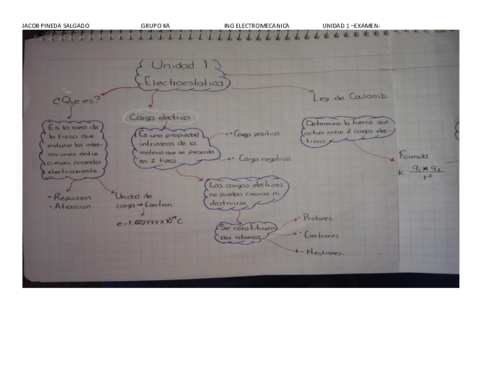 JACOB PINEDA SALGADO GRUPO KA ING ELECTROMECANICA UNIDAD 1 –EXAMEN-
Unidad 1
Electroestatica
¿Que es?
Carga electrica
Ley de Coulomb.
Es la rama de
la fisica que
estudia la inter-
acciones entre
cuerpos cargados
electricamente
• Repulsion
• Atraccion
Unidad de
carga → Electron
Es una propiedad
intrinseca de la
materia que se presenta
en 2 tipos
• Carga positiva
• Carga negativa
Las cargas electricas
no pueden crearse ni
destruirse.
Se constituyen
por atomos
• Protones
• Electrones
• Neutrones.
Determina la fuerza que
actua entre 2 cargas elec-
tricas.
Formula
K q₁ * q₂
r²